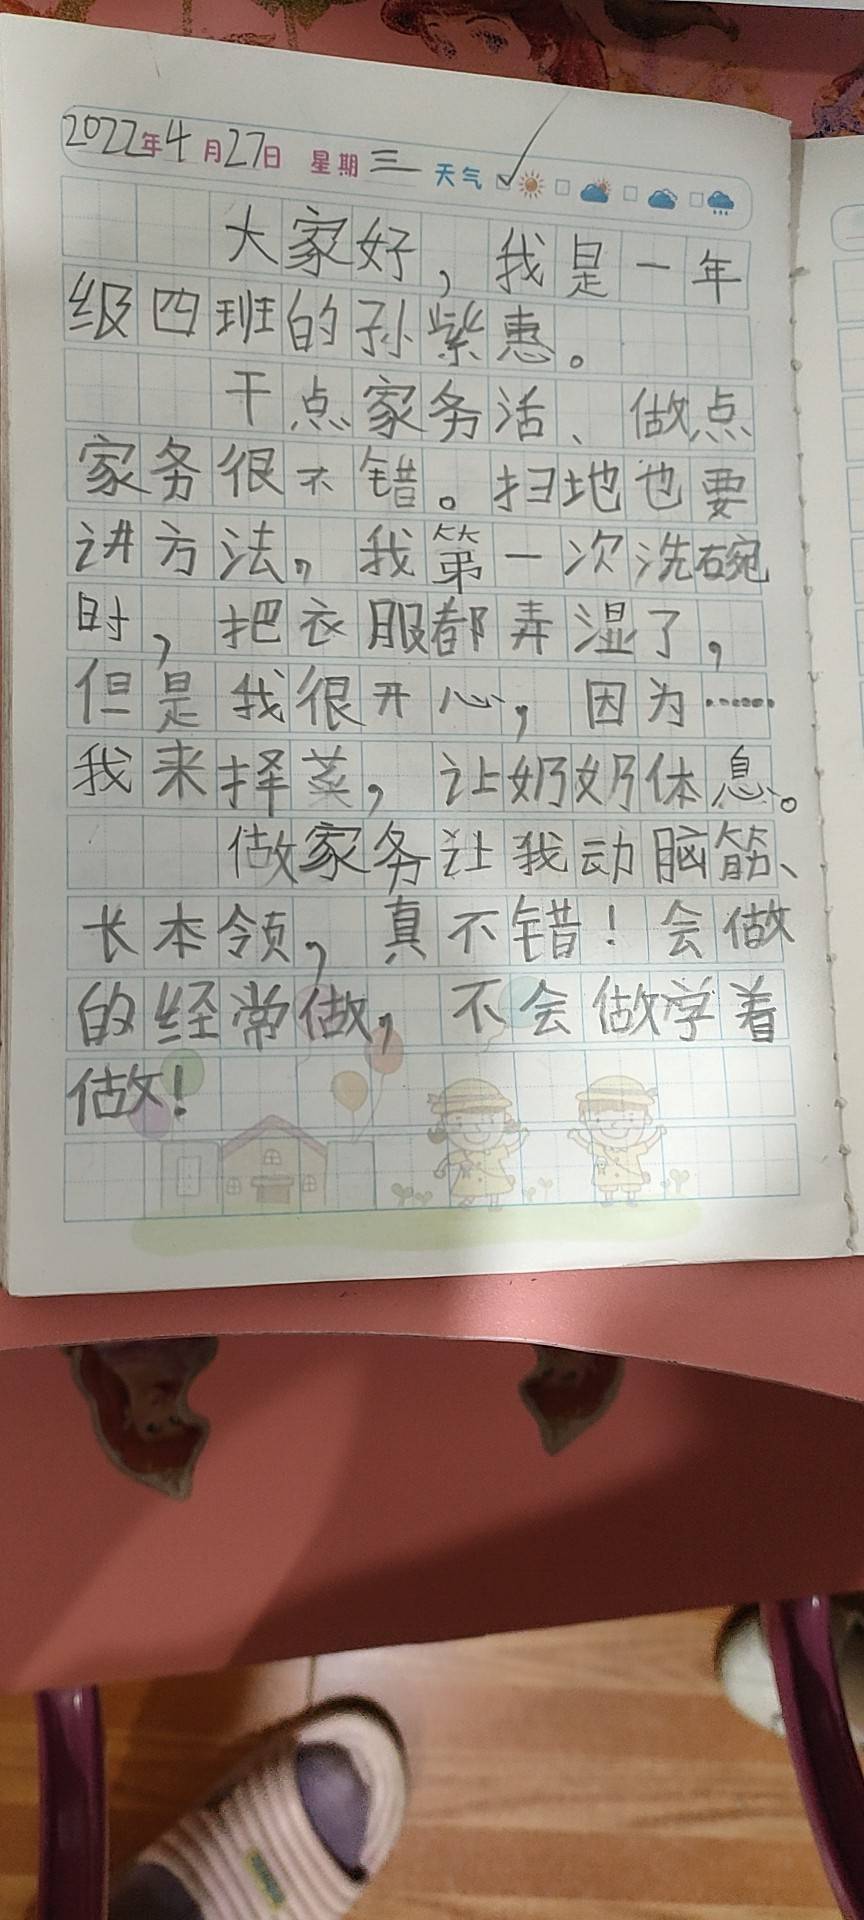 2022年4月27日 星期三 天气
大家好，我是一年
级四班的孙紫惠。
干点家务活、做点
家务很不错。扫地也要
讲方法，我第一次洗碗
时，把衣服都弄湿了，
但是我很开心，因为……
我来择菜，让奶奶休息。
做家务让我动脑筋、
长本领，真不错！会做
的经常做，不会做学着
做！